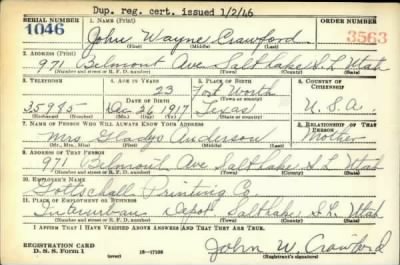 Dup. reg. cert. issued 1/2/46
SERIAL NUMBER 1. NAME (Print) ORDER NUMBER
1046 John Wayne Crawford 3563
(First) (Middle) (Last)
2. ADDRESS (Print)
971 Belmont Ave Salt Lake S.L. Utah
(Number and street or R. F. D. number) (Town) (County) (State)
3. TELEPHONE 4. AGE IN YEARS 5. PLACE OF BIRTH 6. COUNTRY OF CITIZENSHIP
23 Fort Worth
DATE OF BIRTH (Town or county)
35985 Dec 1917 Texas U.S.A.
(Exchange) (No.) (Mo.) (Day) (Yr.) (State or country)
7. NAME OF PERSON WHO WILL ALWAYS KNOW YOUR ADDRESS 8. RELATIONSHIP OF THAT PERSON
Mrs Gladys Anderson Mother
(Mr., Mrs., Miss) (First) (Middle) (Last)
9. ADDRESS OF THAT PERSON
971 Belmont Ave Salt Lake S.L. Utah
(Number and street or R. F. D. number) (Town) (County) (State)
10. EMPLOYER'S NAME
Gottschall Printing Co
11. PLACE OF EMPLOYMENT OR BUSINESS
Interurban Depot Salt Lake S.L. Utah
(Number and street or R. F. D. number) (Town) (County) (State)
I AFFIRM THAT I HAVE VERIFIED ABOVE ANSWERS AND THAT THEY ARE TRUE.
REGISTRATION CARD
D. S. S. Form 1 (over) John W. Crawford
(Registrant's signature)